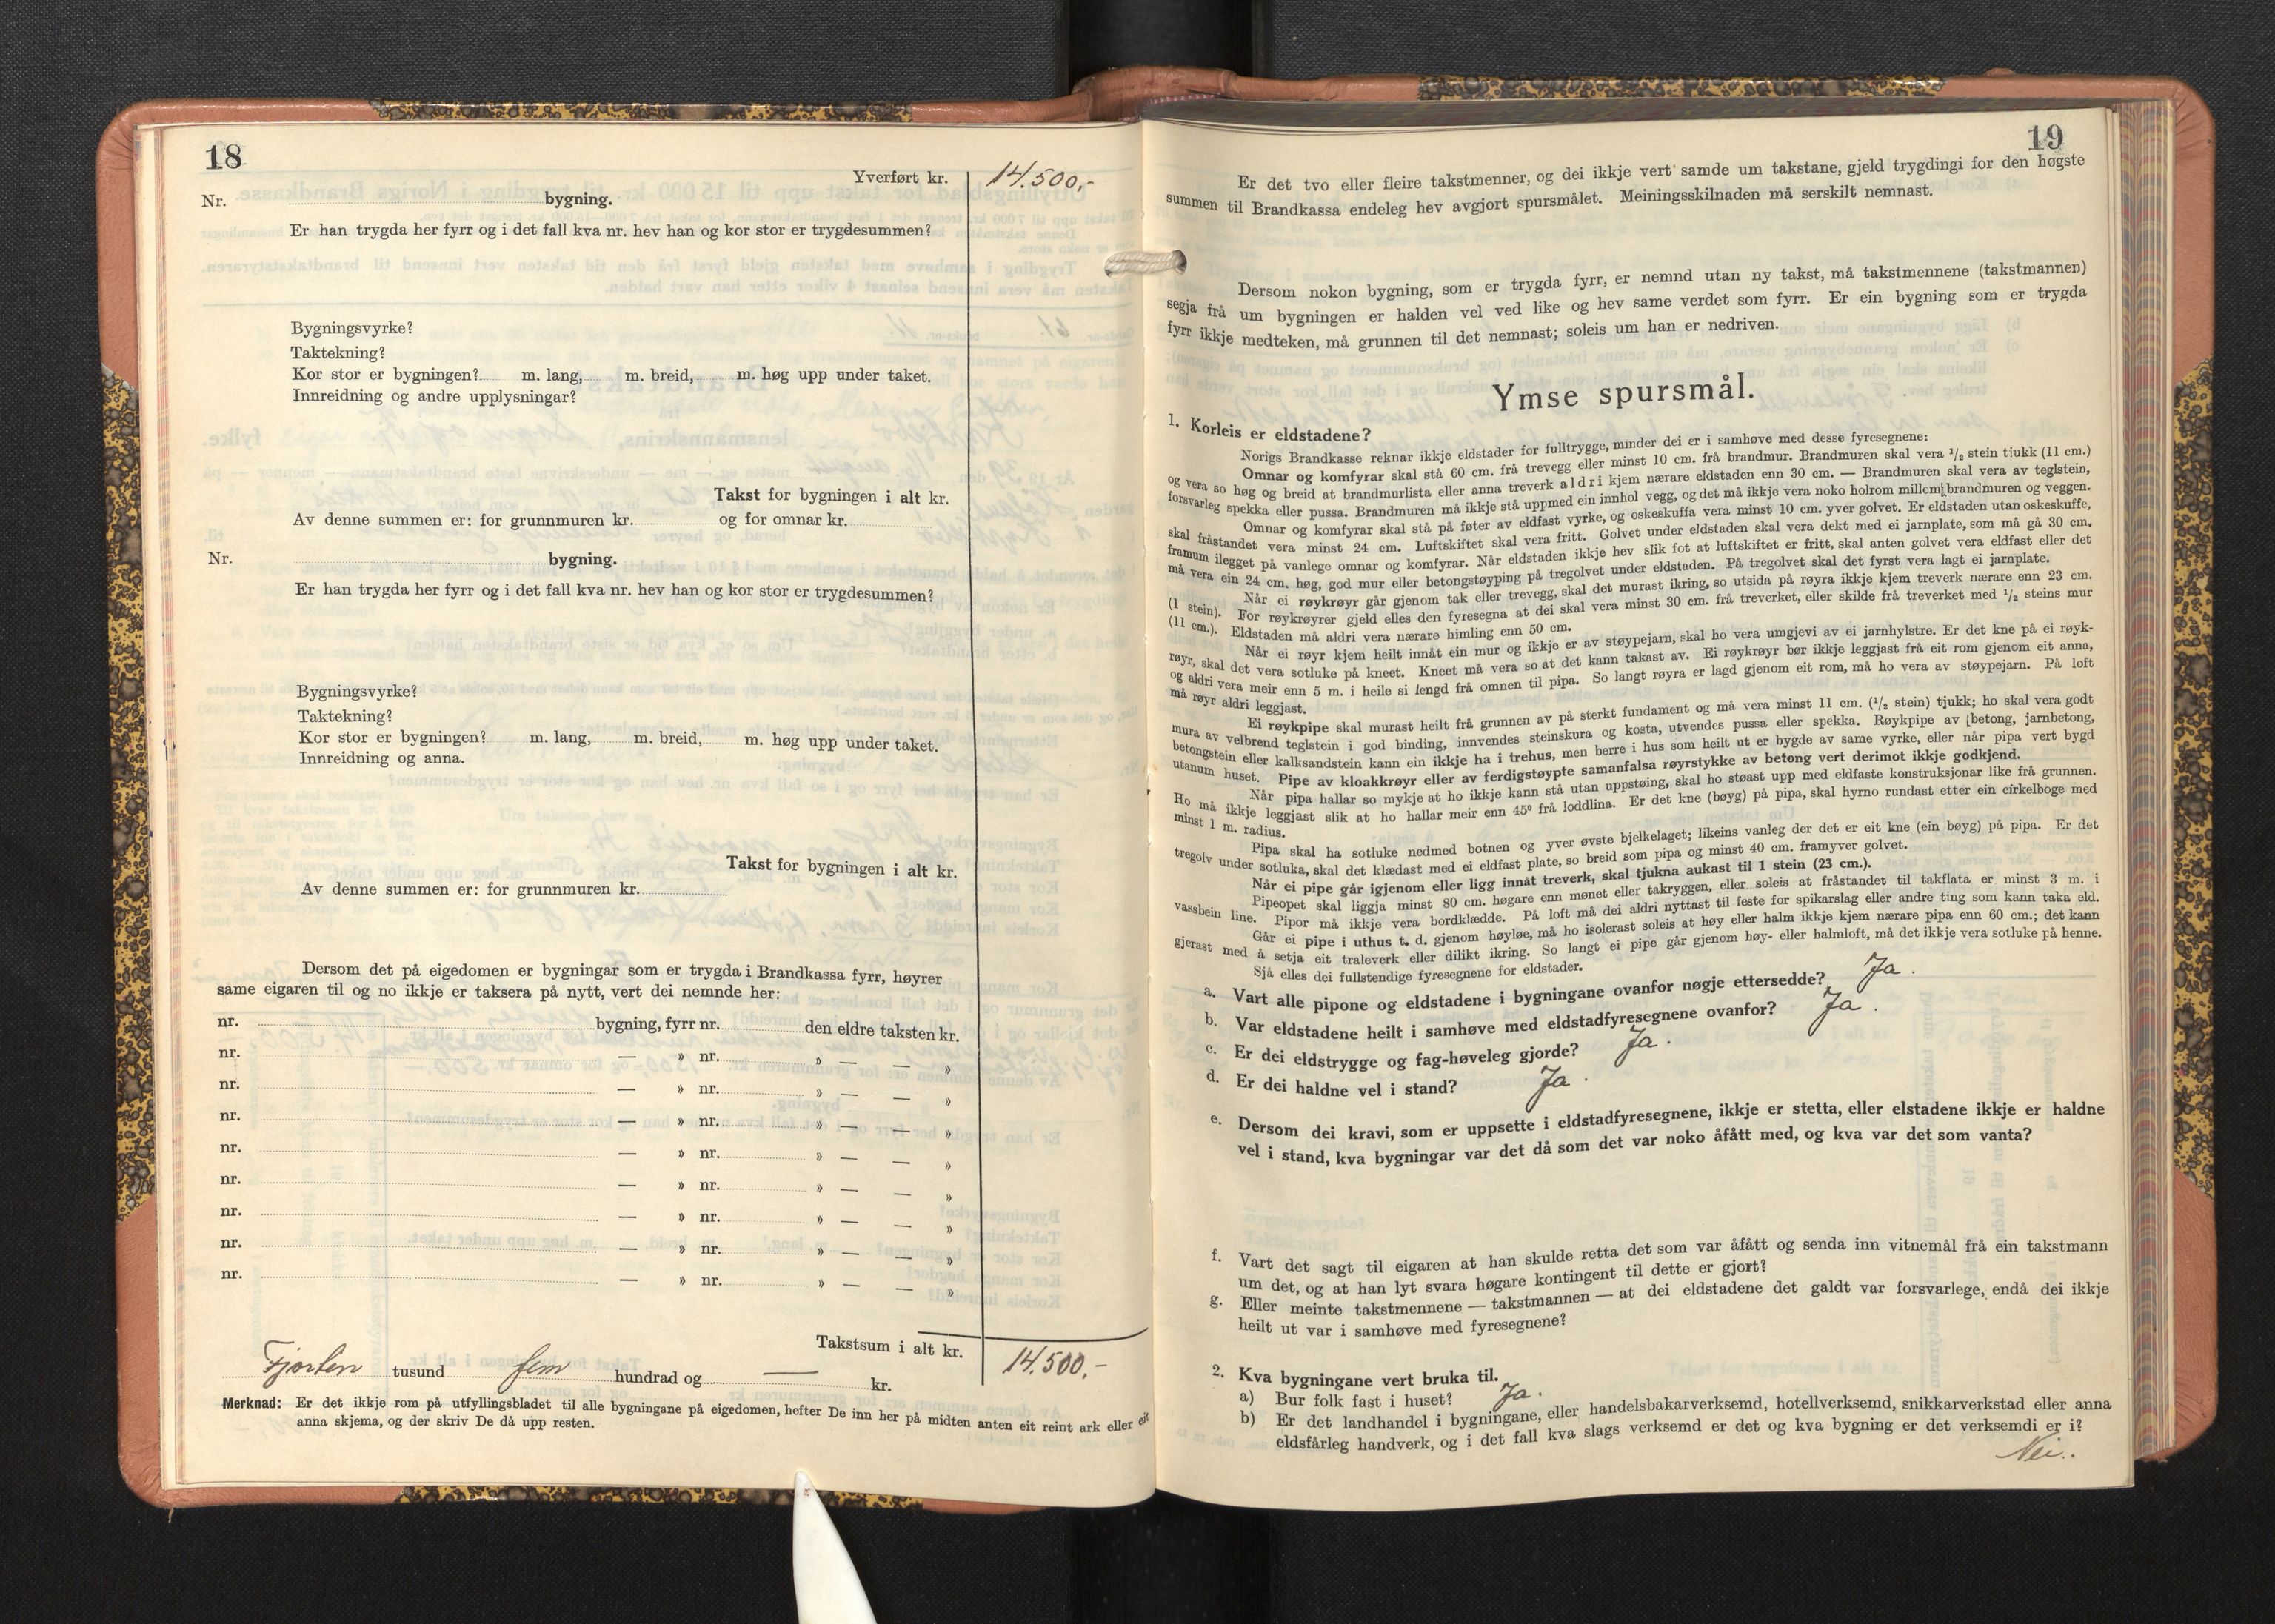 18
Yverført kr. 14.500,-
Nr. bygning.
Er han trygda her fyrr og i det fall kva nr. hev han og kor stor er trygdesummen?
Bygningsvyrke?
Taktekning?
Kor stor er bygningen? m. lang, m. breid, m. høg upp under taket.
Innreidning og andre upplysningar?
Takst for bygningen i alt kr.
Av denne summen er: for grunnmuren kr. og for omnar kr.
Nr. bygning.
Er han trygda her fyrr og i det fall kva nr. hev han og kor stor er trygdesummen?
Bygningsvyrke?
Taktekning?
Kor stor er bygningen? m. lang, m. breid, m. høg upp under taket.
Innreidning og anna.
Takst for bygningen i alt kr.
Av denne summen er: for grunnmuren kr.
Dersom det på eigedomen er bygningar som er trygda i Brandkassa fyrr, høyrer
same eigaren til og no ikkje er taksera på nytt, vert dei nemnde her:
nr. bygning, fyrr nr. den eldre taksten kr.
nr. — » nr. » — — »
nr. — » nr. » — — »
nr. — » nr. » — — »
nr. — » nr. » — — »
nr. — » nr. » — — »
nr. — » nr. » — — »
nr. — » nr. » — — »
nr. — » nr. » — — »
Takstsum i alt kr. 14.500,-
Fjorten tusund fem hundrad og — kr.
Merknad: Er det ikkje rom på utfyllingsbladet til alle bygningane på eigedomen, hefter De inn her på midten anten eit reint ark eller eit
anna skjema, og der skriv De då upp resten.
19
Er det tvo eller fleire takstmenner, og dei ikkje vert samde um takstane, gjeld trygdingi for den høgste
summen til Brandkassa endeleg hev avgjort spursmålet. Meiningsskilnaden må serskilt nemnast.
Dersom nokon bygning, som er trygda fyrr, er nemnd utan ny takst, må takstmennene (takstmannen)
segja frå um bygningen er halden vel ved like og hev same verdet som fyrr. Er ein bygning som er trygda
fyrr ikkje medteken, må grunnen til det nemnast; soleis um han er nedriven.
Ymse spursmål.
1. Korleis er eldstadene?
Norigs Brandkasse reknar ikkje eldstader for fulltrygge, minder dei er i samhøve med desse fyresegnene:
Omnar og komfyrar skal stå 60 cm. frå trevegg eller minst 10 cm. frå brandmur. Brandmuren skal vera 1/2 stein tjukk (11 cm.)
og vera so høg og breid at brandmurlista eller anna treverk aldri kjem nærare eldstaden enn 30 cm. — Brandmuren skal vera av teglstein,
forsvarleg spekka eller pussa. Brandmuren må ikkje stå uppmed ein innhol vegg, og det må ikkje vera noko holrom millom brandmuren og veggen.
Omnar og komfyrar skal stå på føter av eldfast vyrke, og oskeskuffa vera minst 10 cm. yver golvet. Er eldstaden utan oskeskuffe,
skal fråstandet vera minst 24 cm. Luftskiftet skal vera fritt. Golvet under eldstaden skal vera dekt med ei jarnplate, som må gå 30 cm.
framum ilegget på vanlege omnar og komfyrar. Når eldstaden ikkje hev slik fot at luftskiftet er fritt, skal anten golvet vera eldfast eller det
må vera ein 24 cm. høg, god mur eller betongstøyping på tregolvet under eldstaden. På tregolvet skal det fyrst vera lagt ei jarnplate.
Når ei røykrøyr går gjenom tak eller trevegg, skal det murast ikring, so utsida på røyra ikkje kjem treverk nærare enn 23 cm.
(1 stein). For røykrøyrer gjeld elles den fyresegna at dei skal vera minst 30 cm. frå treverket, eller skilde frå treverket med 1/2 steins mur
(11 cm.). Eldstaden må aldri vera nærare himling enn 50 cm.
Når ei røyr kjem heilt innåt ein mur og ikkje er av støypejarn, skal ho vera umgjevi av ei jarnhylstre. Er det kne på ei røyk-
røyr, skal det vera sotluke på kneet. Kneet må vera so at det kann takast av. Ei røykrøyr bør ikkje leggjast frå eit rom gjenom eit anna,
og aldri vera meir enn 5 m. i heile si lengd frå omnen til pipa. So langt røyra er lagd gjenom eit rom, må ho vera av støypejarn. På loft
må røyr aldri leggjast.
Ei røykpipe skal murast heilt frå grunnen av på sterkt fundament og må vera minst 11 cm. (1/2 stein) tjukk; ho skal vera godt
mura av velbrend teglstein i god binding, innvendes steinskura og kosta, utvendes pussa eller spekka. Røykpipe av betong, jarnbetong,
betongstein eller kalksandstein kann ein ikkje ha i trehus, men berre i hus som heilt ut er bygde av same vyrke, eller når pipa vert bygd
utanum huset. Pipe av kloakkrøyr eller av ferdigstøypte samanfalsa røyrstykke av betong vert derimot ikkje godkjend.
Når pipa hallar so mykje at ho ikkje kann stå utan uppstøing, skal ho støast upp med eldfaste konstruksjonar like frå grunnen.
Ho må ikkje leggjast slik at ho hallar meir enn 45° frå loddlina. Er det kne (bøyg) på pipa, skal hyrno rundast etter ein cirkelboge med
minst 1 m. radius.
Pipa skal ha sotluke nedmed botnen og yver øvste bjelkelaget; likeins vanleg der det er eit kne (ein bøyg) på pipa. Er det
tregolv under sotluka, skal det klædast med ei eldfast plate, so breid som pipa og minst 40 cm. framyver golvet.
Når ei pipe går igjenom eller ligg innåt treverk, skal tjukna aukast til 1 stein (23 cm.).
Pipeopet skal liggja minst 80 cm. høgare enn mønet eller takryggen, eller soleis at fråstandet til takflata er minst 3 m. i
vassbein line. Pipor må ikkje vera bordklædde. På loft må dei aldri nyttast til feste for spikarslag eller andre ting som kann taka eld.
Går ei pipe i uthus t. d. gjenom høyløe, må ho isolerast soleis at høy eller halm ikkje kjem nærare pipa enn 60 cm.; det kann
gjerast med å setja eit traleverk eller dilikt ikring. So langt ei pipe går gjenom høy- eller halmloft, må det ikkje vera sotluke på henne.
Sjå elles dei fullstendige fyresegnene for eldstader.
a. Vart alle pipone og eldstadene i bygningane ovanfor nøgje ettersedde? Ja.
b. Var eldstadene heilt i samhøve med eldstadfyresegnene ovanfor? Ja.
c. Er dei eldstrygge og fag-høveleg gjorde? Ja.
d. Er dei haldne vel i stand? Ja.
e. Dersom dei kravi, som er uppsette i eldstadfyresegnene, ikkje er stetta, eller elstadene ikkje er haldne
vel i stand, kva bygningar var det då som det var noko åfått med, og kva var det som vanta?
f. Vart det sagt til eigaren at han skulde retta det som var åfått og senda inn vitnemål frå ein takstmann
um det, og at han lyt svara høgare kontingent til dette er gjort?
g. Eller meinte takstmennene — takstmannen — at dei eldstadene det galdt var forsvarlege, endå dei ikkje
heilt ut var i samhøve med fyresegnene?
2. Kva bygningane vert bruka til.
a) Bur folk fast i huset? Ja.
b) Er det landhandel i bygningane, eller handelsbakarverksemd, hotellverksemd, snikkarverkstad eller anna
eldsfårleg handverk, og i det fall kva slags verksemd er det og kva bygning er det verksemdi er i?
Nei.